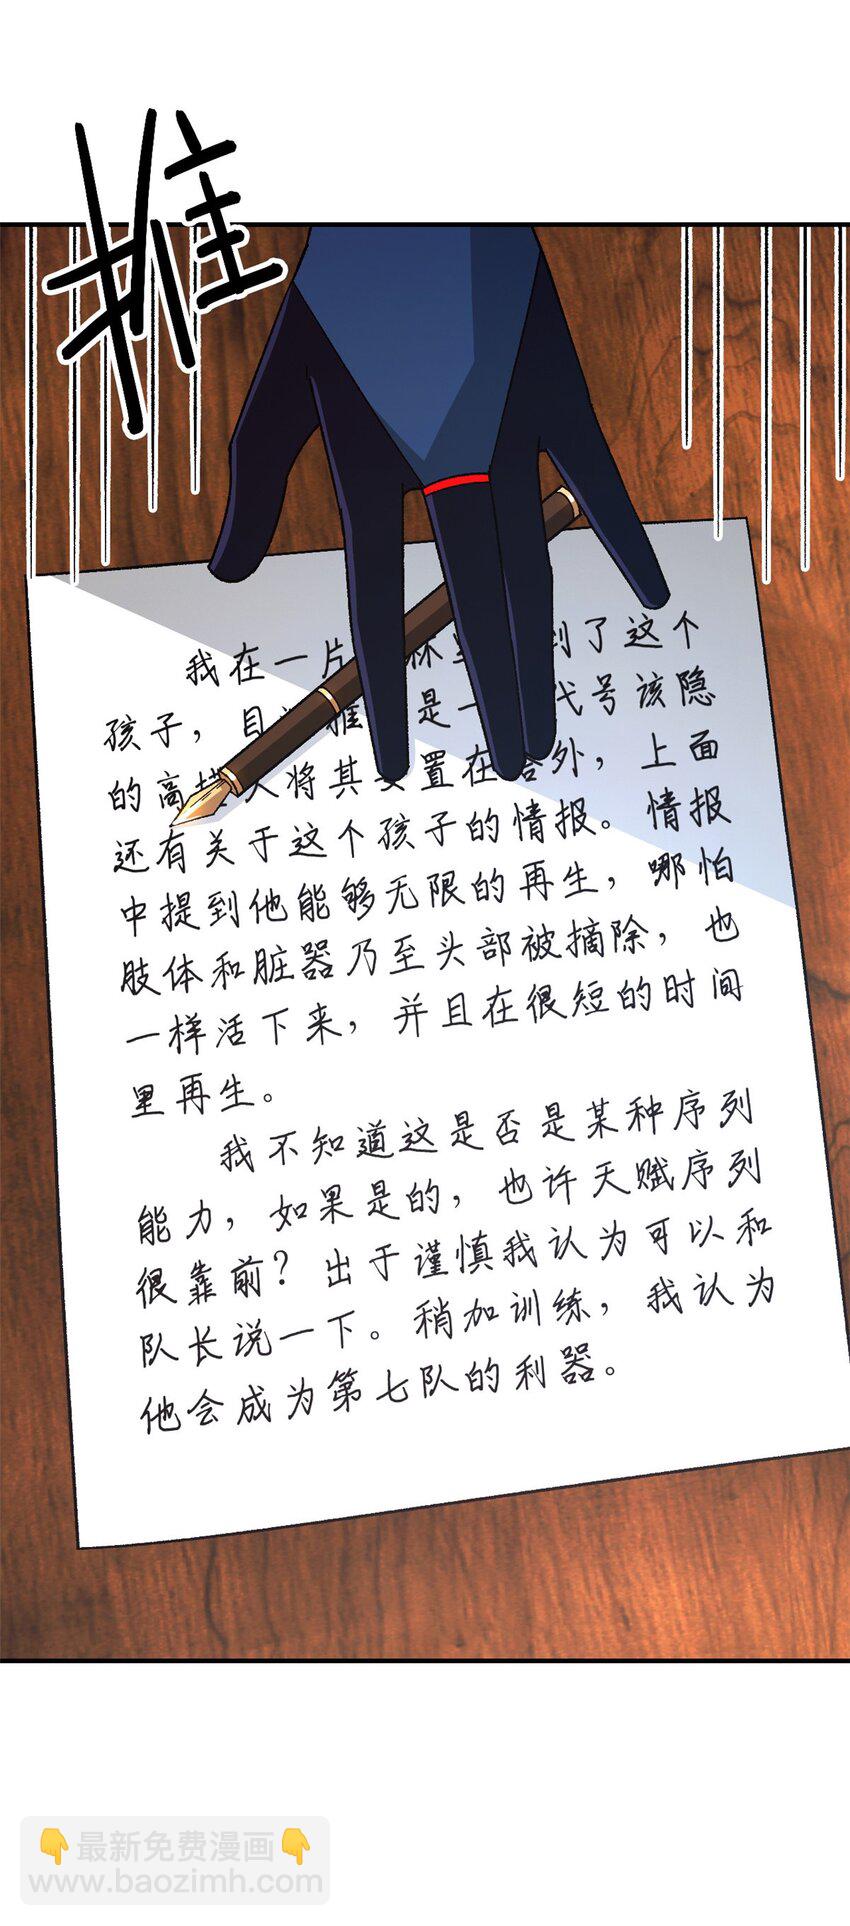 推
我在一片 到了这个
孩子，目 是一 代号该隐
的高 将其 置在 外，上面
还有关于这个孩子的情报。情报
中提到他能够无限的再生，哪怕
肢体和脏器乃至头部被摘除，也
一样活下来，并且在很短的时间
里再生。
我不知道这是否是某种序列
能力，如果是的，也许天赋序列
很靠前？出于谨慎我认为可以和
队长说一下。稍加训练，我认为
他会成为第七队的利器。
👇最新免费漫画👇
www.baozimh.com